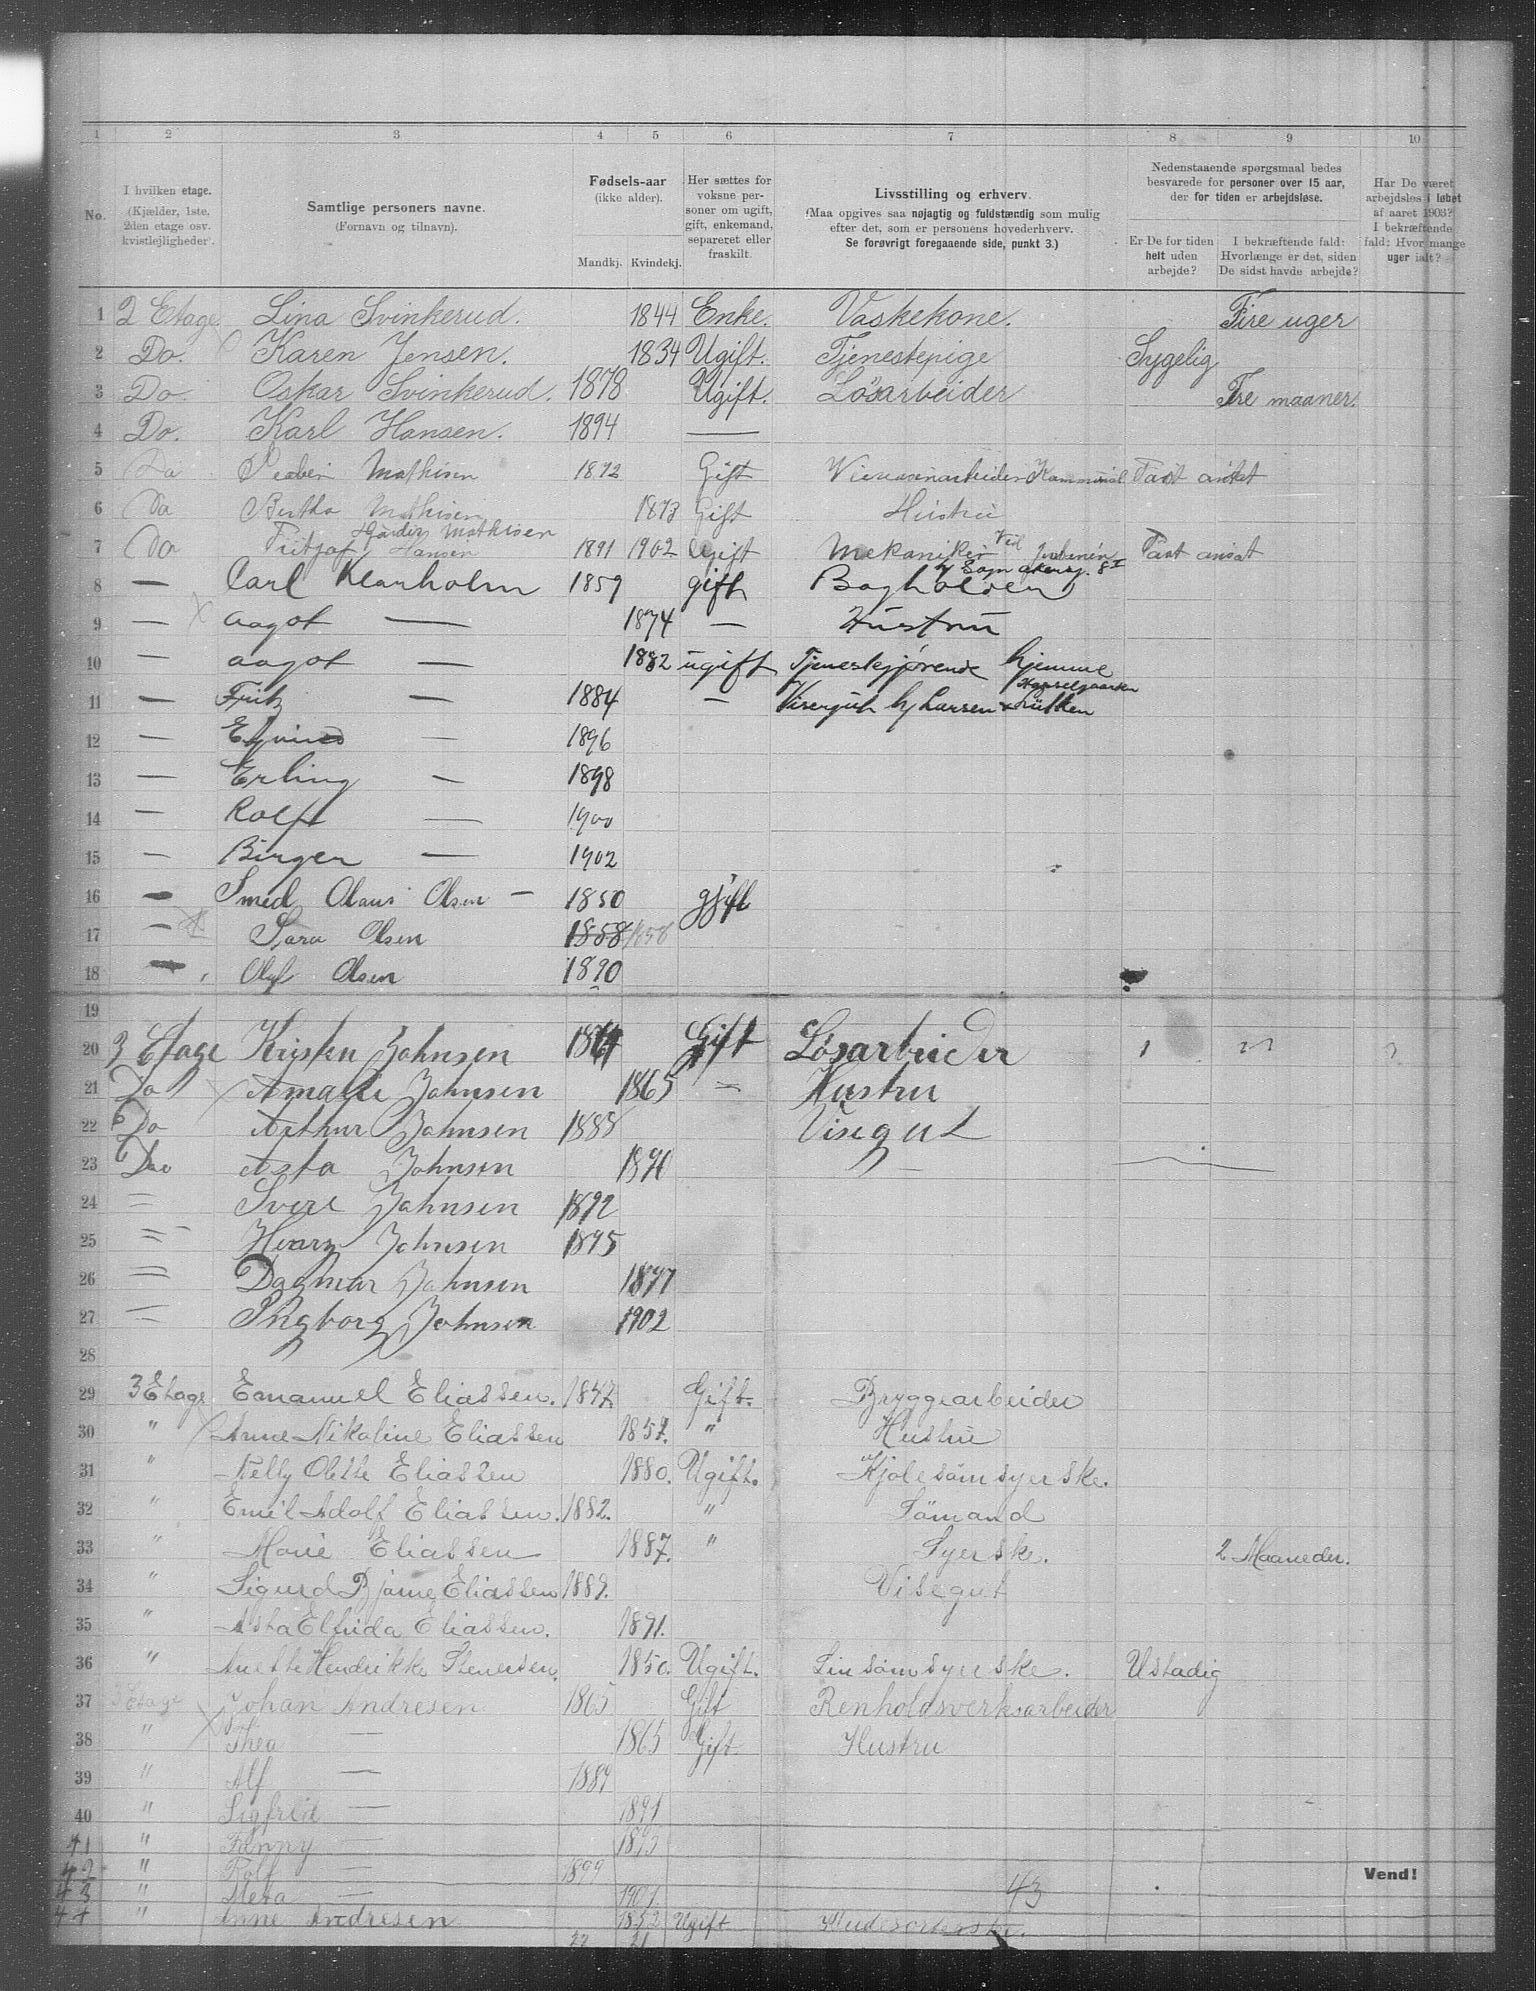 1 2 3 4 5 6 7 8 9 10
No.
I hvilken etage.
(Kjælder, 1ste, 2den etage osv. kvistlejligheder.
Samtlige personers navne.
(Fornavn og tilnavn).
Fødsels-aar
(ikke alder).
Mandkj. Kvindekj.
Her sættes for voksne personer om ugift, gift, enkemand, separeret eller fraskilt.
Livsstilling og erhverv.
(Maa opgives saa nøjagtig og fuldstændig som mulig efter det, som er personens hovederhverv.
Se forøvrigt foregaaende side, punkt 3.)
Nedenstaaende spørgsmaal bedes besvarede for personer over 15 aar, der for tiden er arbejdsløse.
Er De for tiden helt uden arbejde?
I bekræftende fald: Hvorlænge er det, siden De sidst havde arbejde?
Har De været arbejdsløs i løbet af aaret 1903? I bekræftende fald: Hvor mange uger ialt?
1 2 Etage Lina Svinkerud. 1844 Enke. Vaskekone. Fire uger
2 Do. Karen Jensen. 1834 Ugift. Tjenestepige Sygelig
3 Do. Oskar Svinkerud. 1878 Ugift. Løsarbeider Tre maaner.
4 Do. Karl Hansen. 1894 —
5 Do Mathisen 1872 Gift Kommunal Fast ansat
6 Do Bertha Mathisen 1873 Gift Hustru
Mathisen
7 Do Fritjof Hansen 1891 1902 Ugift Mekaniker Ved Fast ansat
8 — Carl Klarholm 1859 gift Bogholder
9 — aagot — 1874 — Hustru
10 — aagot — 1882 ugift Tjenestegjørende hjemme
11 — Fritz — 1884 — Visergut h/ Larsen &
12 — Eyvind — 1896
13 — Erling — 1898
14 — Rolf — 1900
15 — Birger — 1902
16 — Smed Olaus Olsen — 1850 gift
17 — Sara Olsen 1858 1858
18 — Oluf Olsen 1890
19
20 3 Etage Kristen Johnsen 1864 Gift Løsarbeider 1
21 Do Amalie Johnsen 1865 — Hustru
22 Do Arthur Johnsen 1888 Visegut
23 Do Asta Johnsen 1890 —
24 = Svere Johnsen 1892
25 = Henry Johnsen 1895
26 = Dagmar Johnsen 1897
27 = Ingborg Johnsen 1902
28
29 3 Etage Emanuel Eliassen. 1847. Gift. Bryggearbeider
30 " Anne Nikoline Eliassen 1857. " Hustru
31 " Nelly Olette Eliassen 1880. Ugift. Kjolesømsyerske.
32 " Emil Adolf Eliassen. 1882. " Sømand
33 " Marie Eliassen 1887. " Syerske. 2 Maaneder.
34 " Sigurd Bjarne Eliassen 1889. Visegut
35 " Asta Elfrida Eliassen. 1891.
36 " Anette Hendrikke Stenersen. 1850. Ugift. Linsømsyerske. Ustadig
37 3 Etage Johan Andresen 1865 Gift Renholdsverksarbeider
38 " Thea — 1865 Gift Hustru
39 " Alf — 1889
40 " Sigfrid — 1891
41 " Fanny — 1895
42 " Rolf — 1899
43 " Meta — 1901 43
44 " Anne Andresen 1852 Ugift
22 21
Vend!